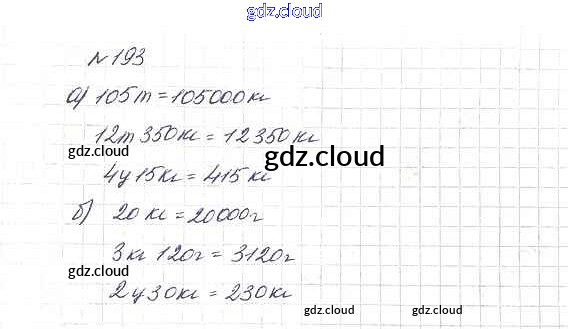 gdz.cloud
№193
а) 105т = 105000кг
12т 350кг = 12350кг
gdz.cloud
gdz.cloud
4ц 15кг = 415кг
б) 20кг = 20000г
3кг 120г = 3120г
gdz.cloud
2ц 30кг = 230кг
gdz.cloud
gdz.cloud